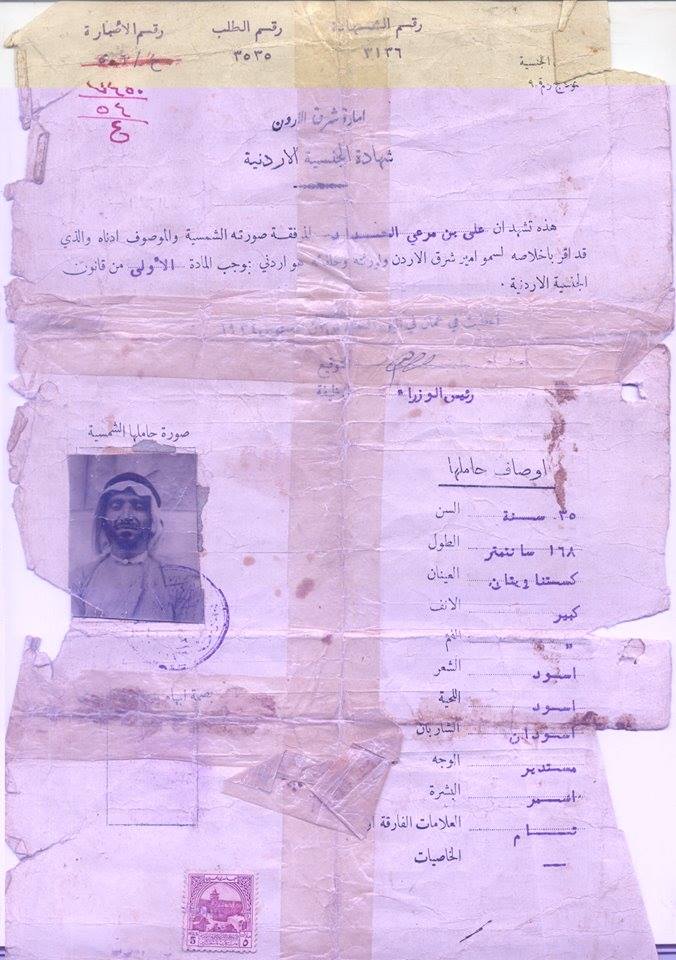 رقم الشهادة رقسم الطلب رقسم الاضبارة
٣١٣٦ ٣٥٣٥
الجنسية
٥٤
٤
امارة شرق الاردن
شهادة الجنسية الاردنية
هذه تشهد ان على بن مرعي المرفقة صورته الشمسية والموصوف ادناه والذي
قد اقر باخلاصه لسمو امير شرق الاردن ولورثته هو اردني بموجب المادة الأولى من قانون
الجنسية الاردنية .
اعطيت في عمان في
التوقيع
رئيس الوزراء
صورة حاملها الشمسية
اوصاف حاملها
السن ٣٥ سنة
الطول ١٦٨ سانتمتر
العينان كستناويتان
الانف كبير
الفم "
الشعر اسود
اللحية اسود
الشاربان اسودان
الوجه مستدير
البشرة اسمر
العلامات الفارقة او تام
الخاصيات —
بصمة ابهام
5 ٥